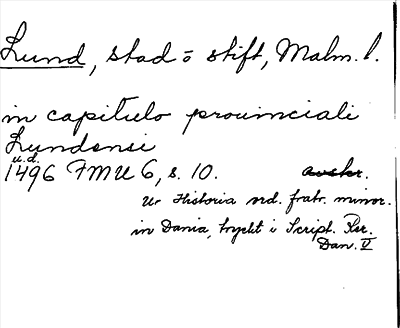 Lund, stad o stift, Malm. l.
in capitulo prouinciali
Lundensi
u.d.
1496 FMU 6, s. 10. avskr.
Ur Historia ord. fratr. minor.
in Dania, tryckt i Script. Rer.
Dan. V